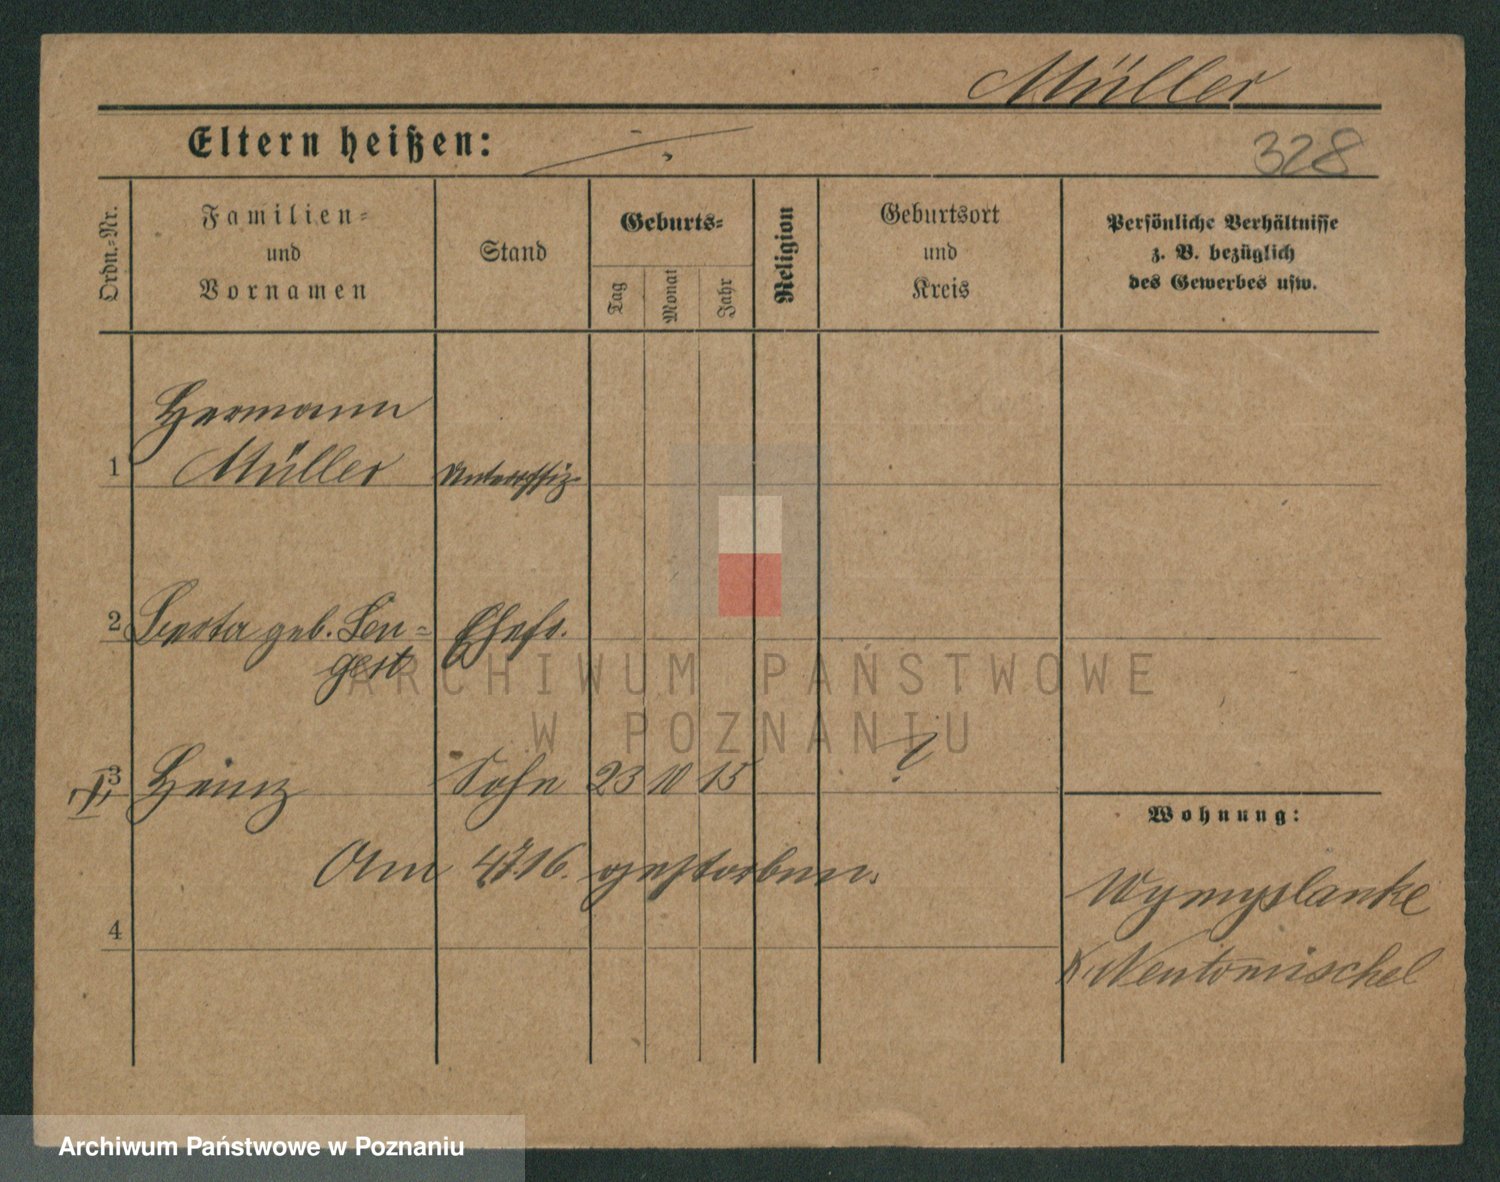 Müller
Eltern heißen:
328
Ordn.-Nr.
Familien-
und
Vornamen
Stand
Geburts-
Tag
Monat
Jahr
Religion
Geburtsort
und
Kreis
Persönliche Verhältnisse
z. B. bezüglich
des Gewerbes usw.
Hermann
1 Müller Unteroffiz.
2 Berta geb. Len=
gest
Ehefr.
3 Heinz Sohn 23 10 15 ?
Am 4.7.16. gestorben.
4
Wohnung:
Wymyslanke
K. Neutomischel
ARCHIWUM PAŃSTWOWE
W POZNANIU
Archiwum Państwowe w Poznaniu